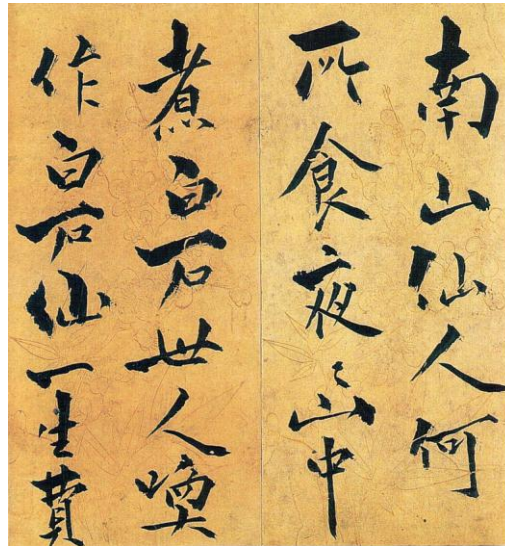 南山仙人何
所食夜〻山中
煮白石世人喚
作白石仙一生費